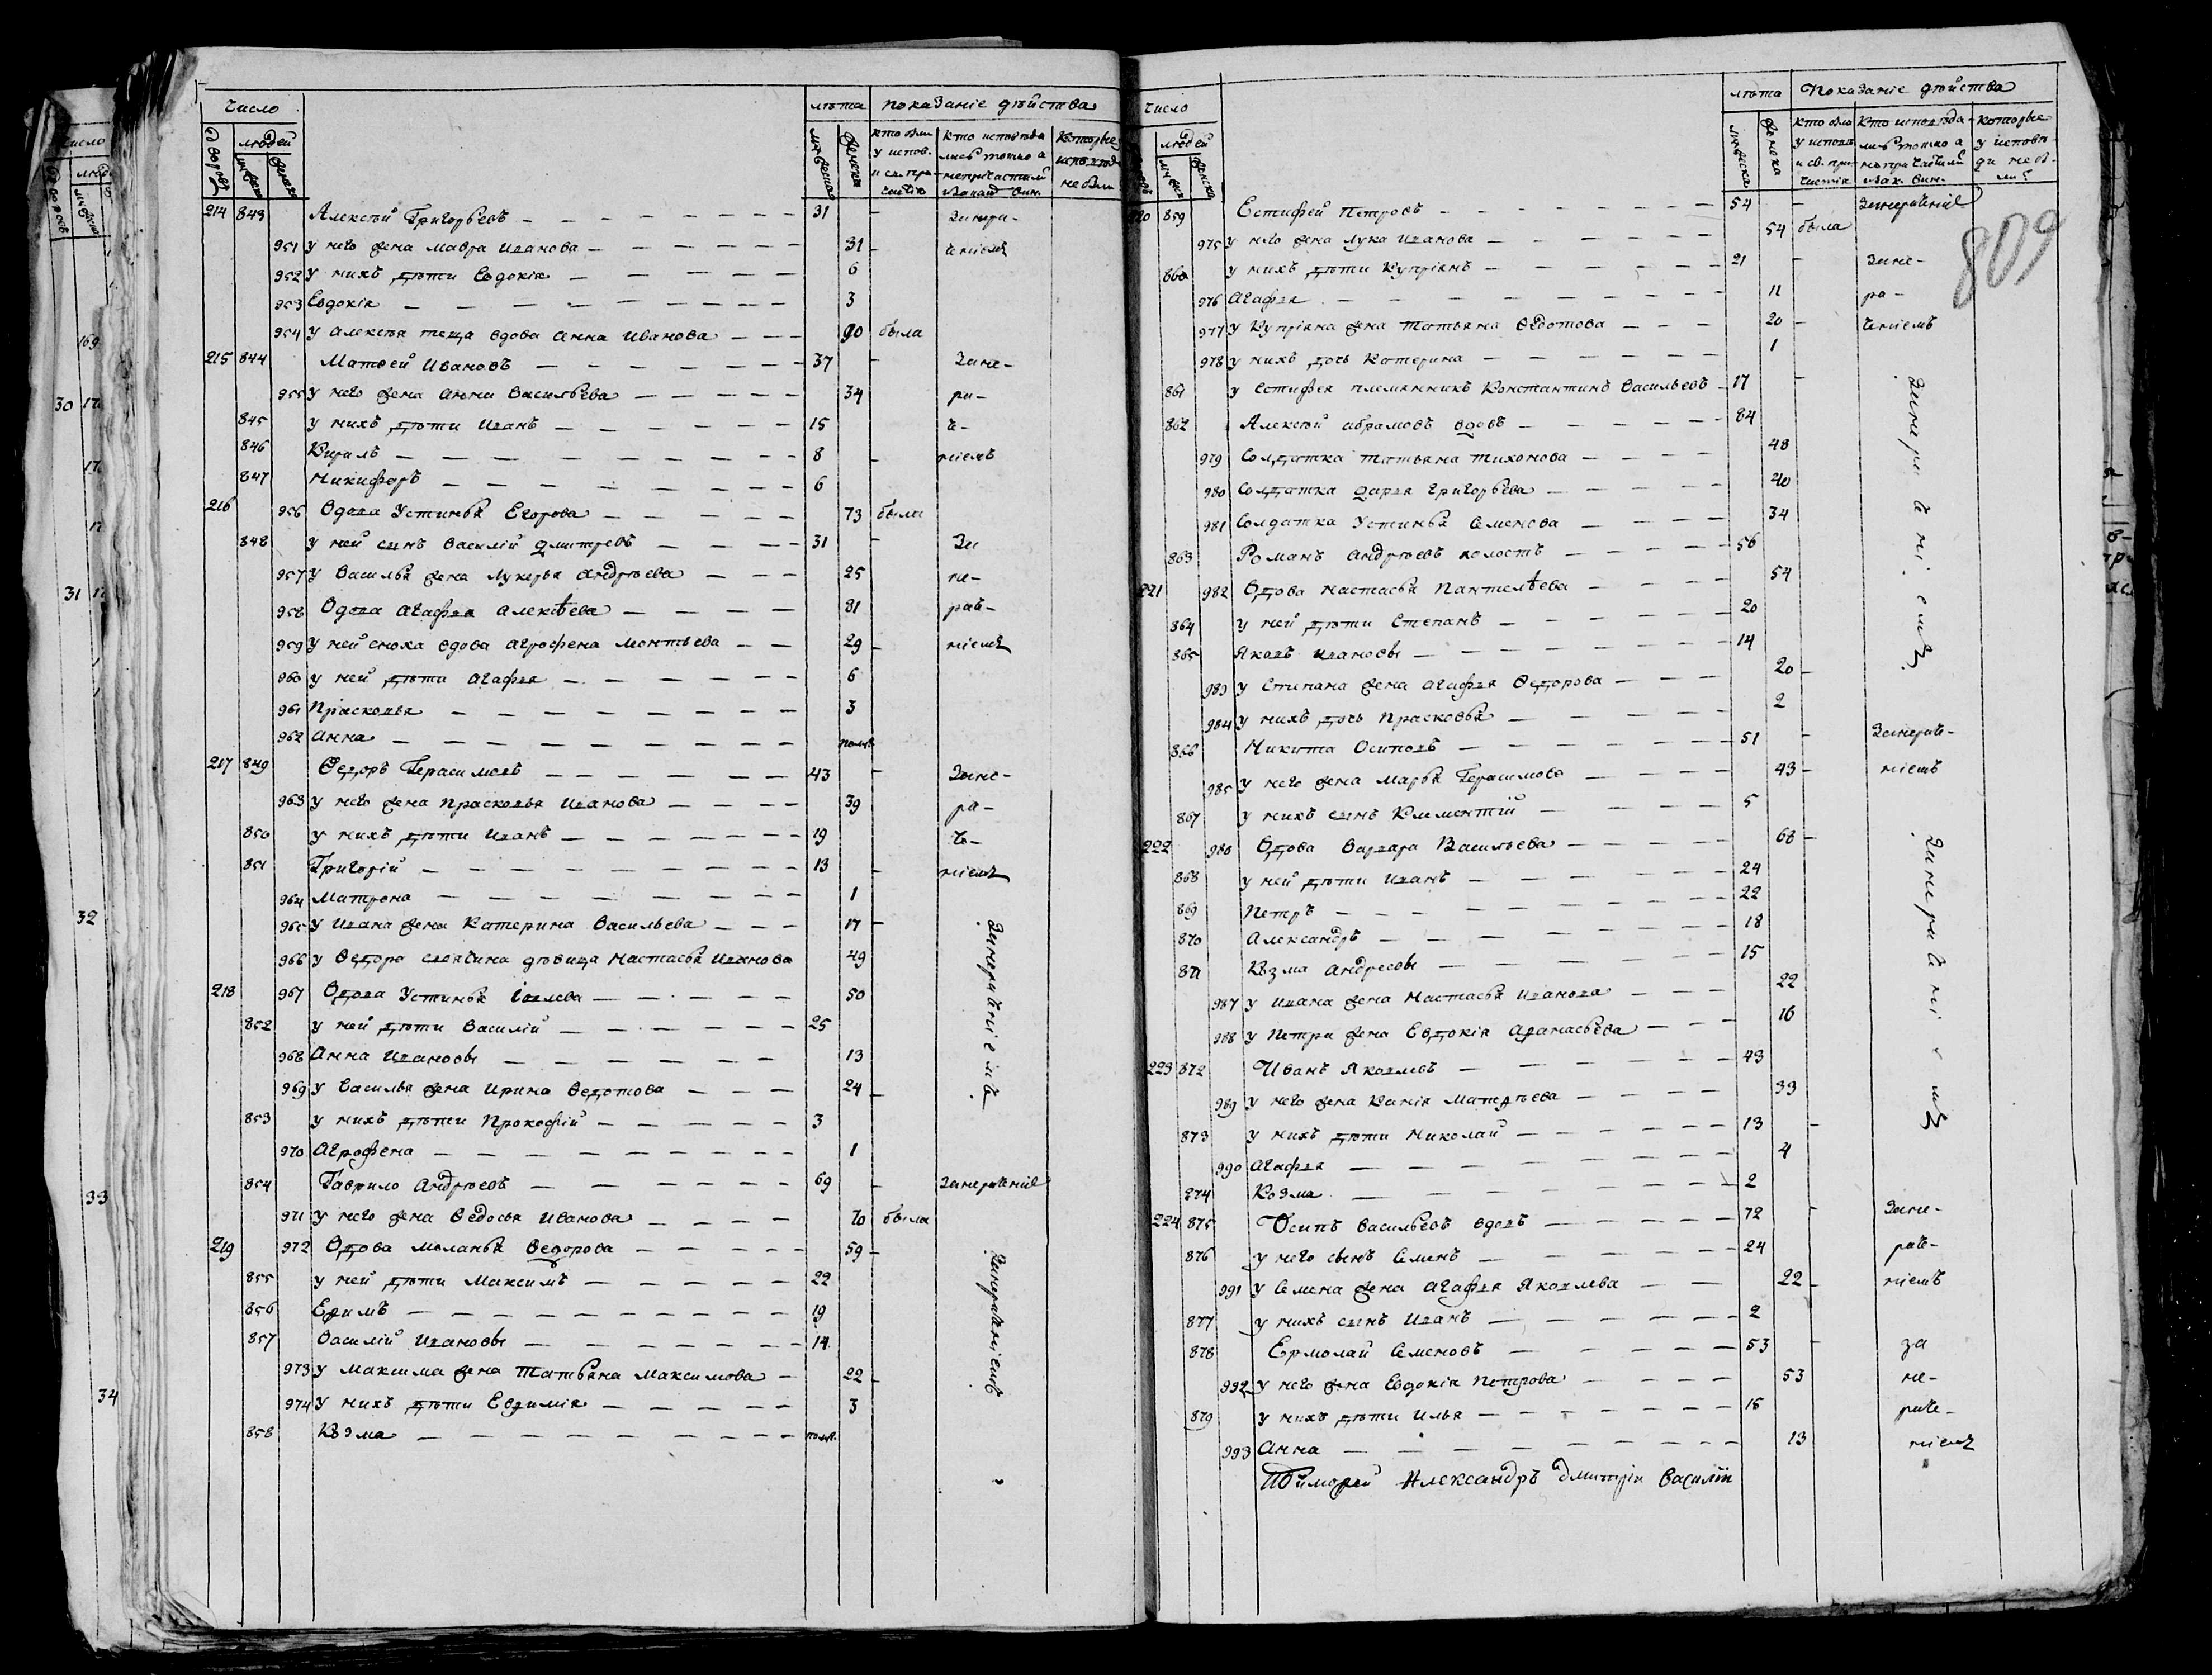 Число лѣта показаніе дѣйства
дворовъ людей мужеска женска мужеска женска кто были у испов. и св. причастія кто исповѣдались токмо а не причастились и за каки вин. которые исповѣди не были
214 843 Алексѣй Григорьевъ 31 - Занера-
951 у него жена Мавра Иванова 31 - ченіемъ
952 у нихъ дѣти Евдокія 6
953 Евдокія 3
954 у Алексѣя теща вдова Анна Иванова 90 была
215 844 Матвей Ивановъ 37 - Зане-
955 у него жена Анна Васильева 34 ра-
845 у нихъ дѣти Иванъ 15 ч-
846 Кирилъ 8 - ніемъ
847 Никифоръ 6
216 956 Вдова Устинья Егорова 73 была
848 у ней сынъ Василій Дмитревъ 31 - За
957 у Василья жена Лукерья Андрѣева 25 не-
958 Вдова Агафья Алексѣева 81 рач-
959 у ней сноха вдова Агрофена Леонтьева 29 - ніемъ
960 у ней дѣти Агафья 6
961 Прасковья 3
962 Анна полг.
217 849 Ѳедоръ Герасимовъ 43 - Зане-
963 у него жена Прасковья Иванова 39 ра-
850 у нихъ дѣти Иванъ 19 ч-
851 Григорій 13 - ніемъ
964 Матрона 1
965 у Ивана жена Катерина Васильева 17 - Занераченіемъ
966 у Ѳедора своячина дѣвица Настасья Иванова 49
218 967 Вдова Устинья Іевлева 50
852 у ней дѣти Василій 25
968 Анна Ивановы 13
969 у Василья жена Ирина Ѳедотова 24 -
853 у нихъ дѣти Прокофій 3
970 Агрофена 1
854 Гаврило Андрѣевъ 69 - Занераченіе
971 у него жена Ѳедосья Иванова 70 была
219 972 Вдова Меланья Ѳедорова 59 - Занераченіемъ
855 у ней дѣти Максимъ 22
856 Ефимъ 19
857 Василій Ивановы 14
973 у Максима жена Татьяна Максимова 22 -
974 у нихъ дѣти Евфимія 3
858 Козма полг.
Число лѣта Показаніе дѣйства
людей мужеска женска мужеска женска кто были у исповѣ и св. причастія кто исповѣдались токмо а не причастились и за как. вин. которые у исповѣди не были
809
220 859 Естифей Петровъ 54 - Занераченіе
975 у него жена Лука Иванова 54 была
860 у нихъ дѣти Купріянъ 21 - Зане-
976 Агафья 11 - ра-
977 у Купріяна жена Татьяна Ѳедотова 20 - ченіемъ
978 у нихъ дочь Катерина 1
861 у Естифея племянникъ Константинъ Васильевъ 17 - Занераченіемъ
862 Алексѣй Абрамовъ вдовъ 84
979 Солдатка Татьяна Тихонова 48
980 Солдатка Дарья Григорьева 40
981 Солдатка Устинья Семенова 34
863 Романъ Андрѣевъ холостъ 56
221 982 Вдова Настасья Пантелѣева 54
864 у ней дѣти Степанъ 20
865 Яковъ Ивановы 14
983 у Степана жена Агафья Ѳедорова 20 -
984 у нихъ дочь Прасковья 2
866 Никита Осиповъ 51 - Занерач-
985 у него жена Марья Герасимова 43 - ніемъ
867 у нихъ сынъ Климентій 5
222 986 Вдова Варвара Васильева 68 - Занераченіемъ
868 у ней дѣти Иванъ 24
869 Петръ 22
870 Александръ 18
871 Козма Андреевы 15
987 у Ивана жена Настасья Иванова 22
988 у Петра жена Евдокія Афанасьева 16
223 872 Иванъ Яковлевъ 43
989 у него жена Ксенія Матвѣева 39
873 у нихъ дѣти Николай 13 -
990 Агафья 4
874 Козма 2
224 875 Осипъ Васильевъ вдовъ 72 - Зане-
876 у него сынъ Семенъ 24 рач-
991 у Семена жена Агафья Яковлева 22 - ніемъ
877 у нихъ сынъ Иванъ 2
878 Ермолай Семеновъ 53 - за
992 у него жена Евдокія Петрова 53 не-
879 у нихъ дѣти Илья 15 раче-
993 Анна 13 ніемъ
Тимофей Александръ Дмитрій Василій